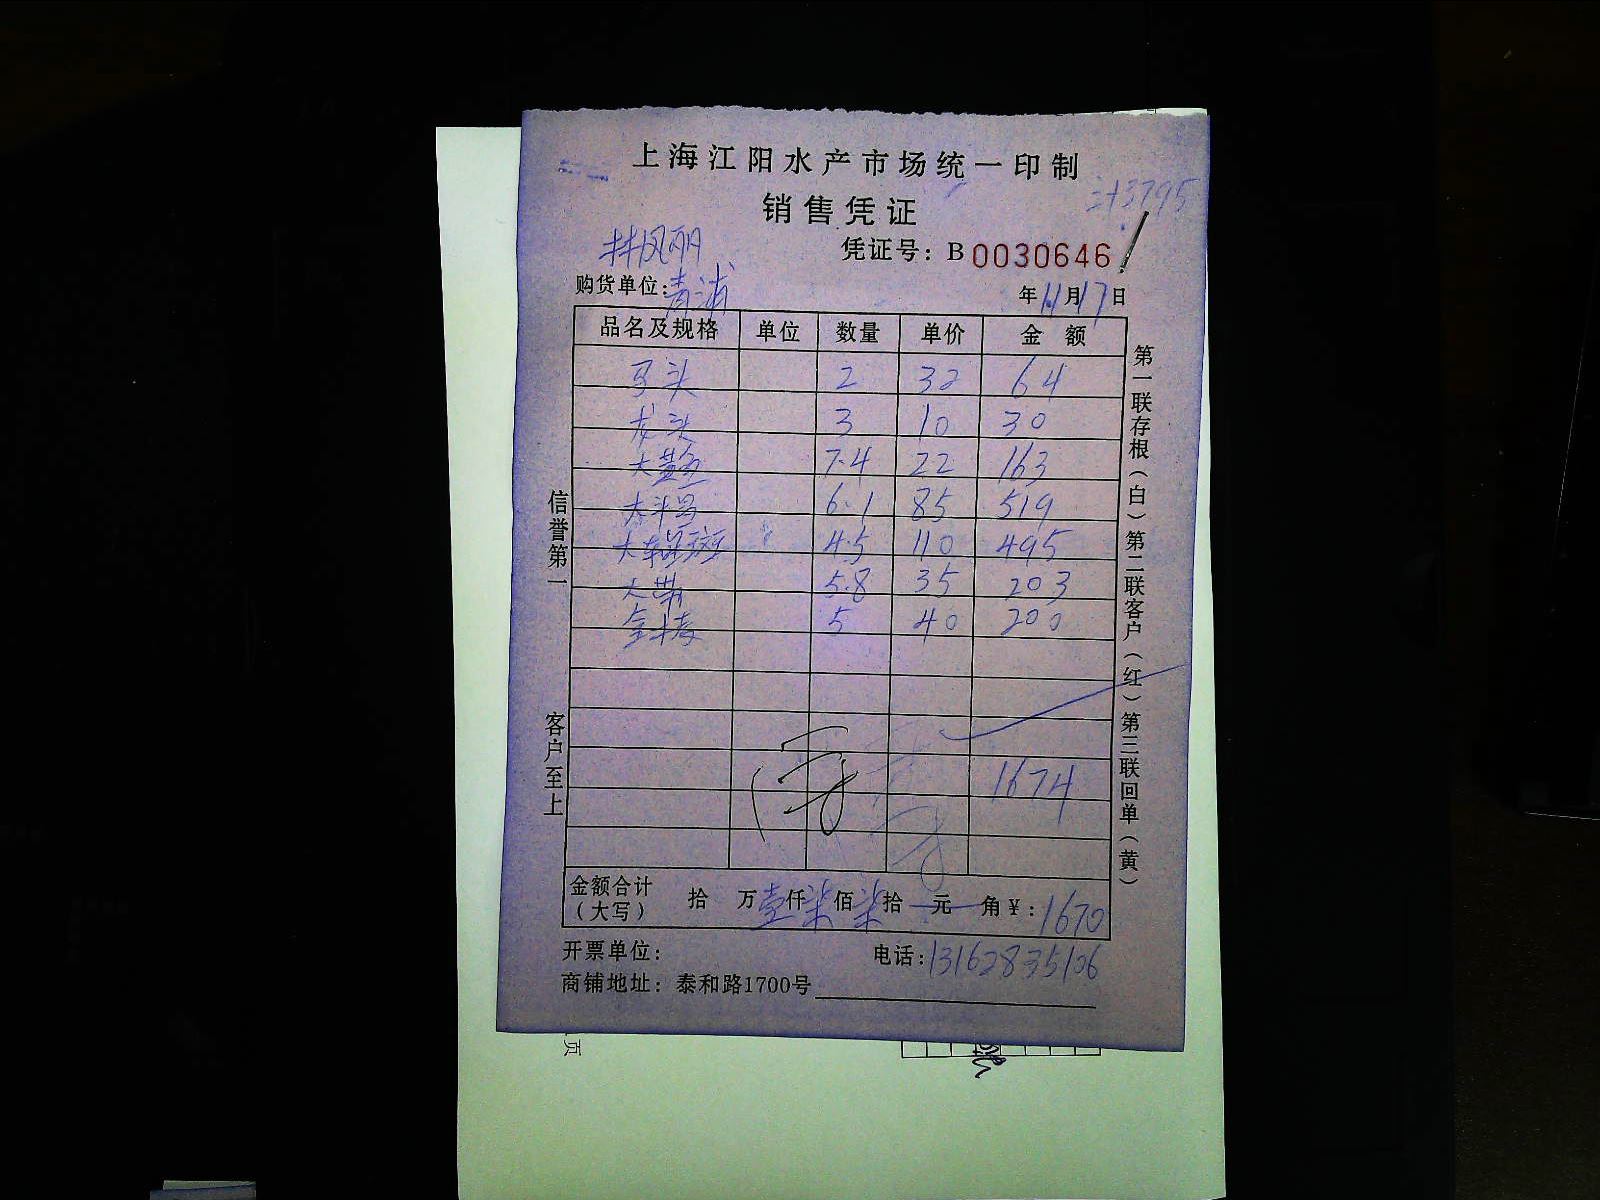 上海江阳水产市场统一印制
计3795
销售凭证
林凤丽
凭证号：B 0030646
购货单位：青浦
年11月17日
品名及规格 单位 数量 单价 金额
马头 2 32 64
龙头 3 10 30
大黄鱼 7.4 22 163
6.1 85 519
大东星斑 4.5 110 495
大带 5.8 35 203
5 40 200
1674
金额合计（大写） 拾 万壹仟柒佰柒拾 元 角￥：1670
开票单位： 电话：13162835106
商铺地址：泰和路1700号
信誉第一
客户至上
第一联存根（白）第二联客户（红）第三联回单（黄）
页